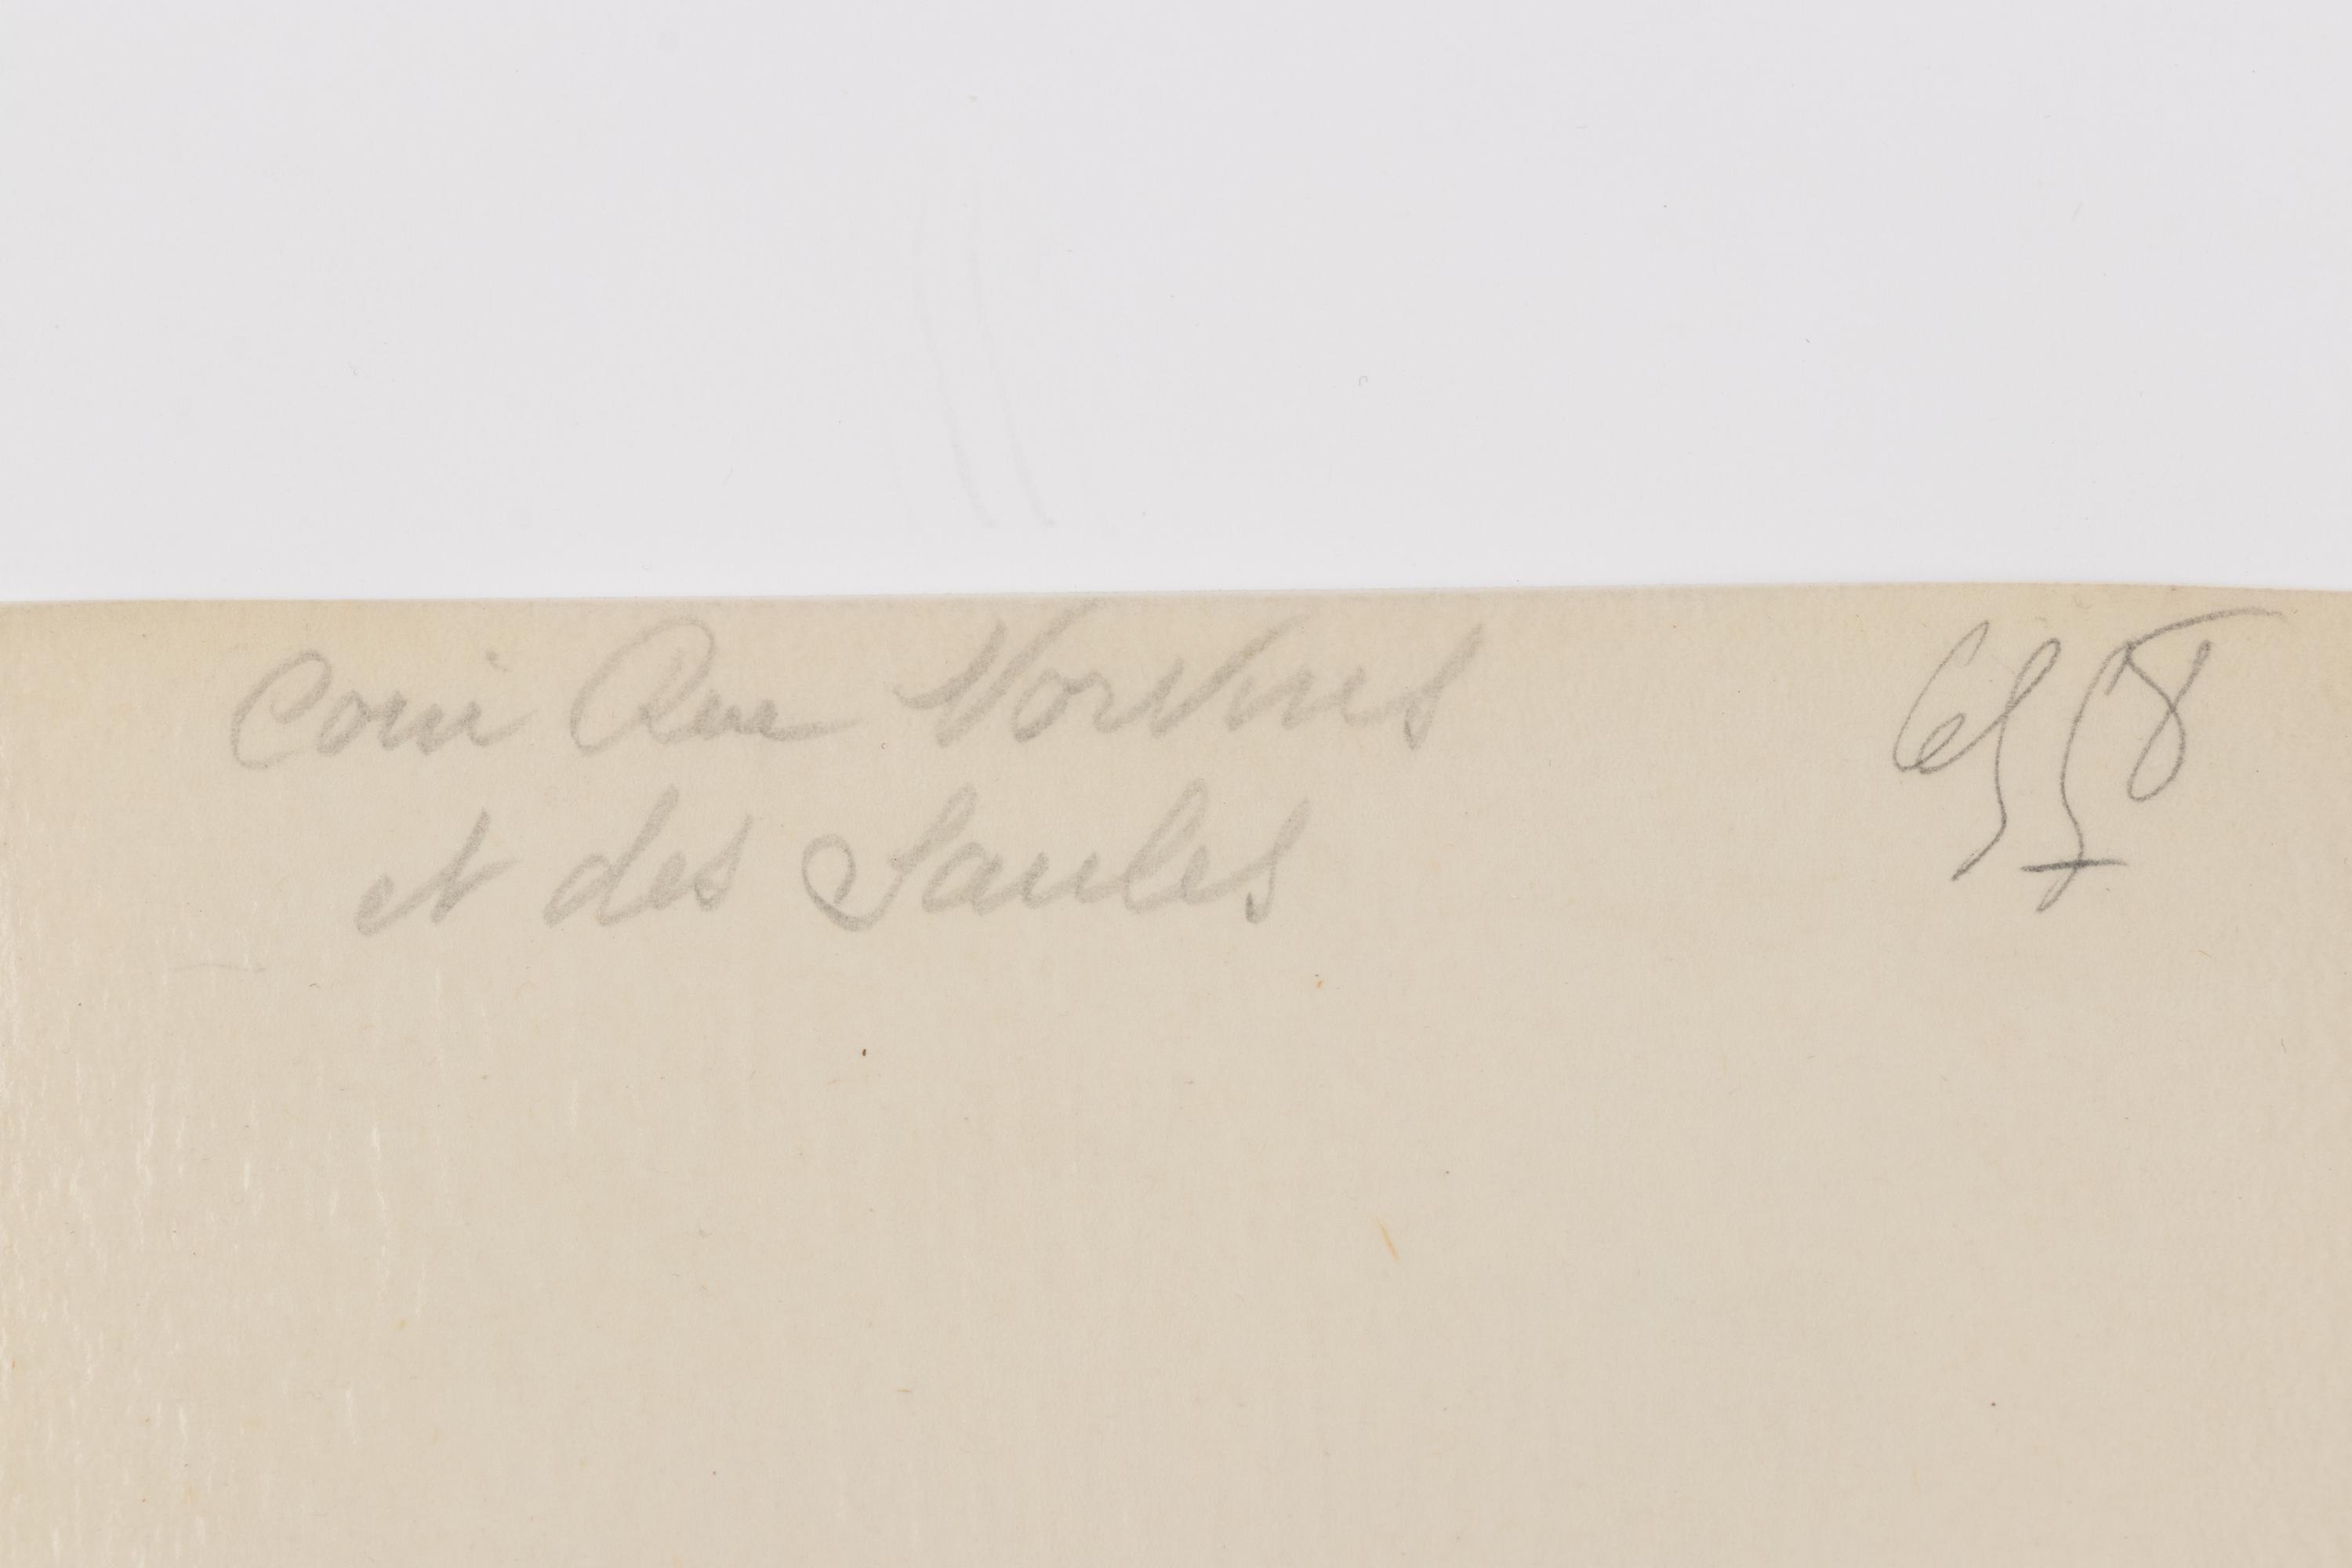 Coin Rue Norvins
et des Saules